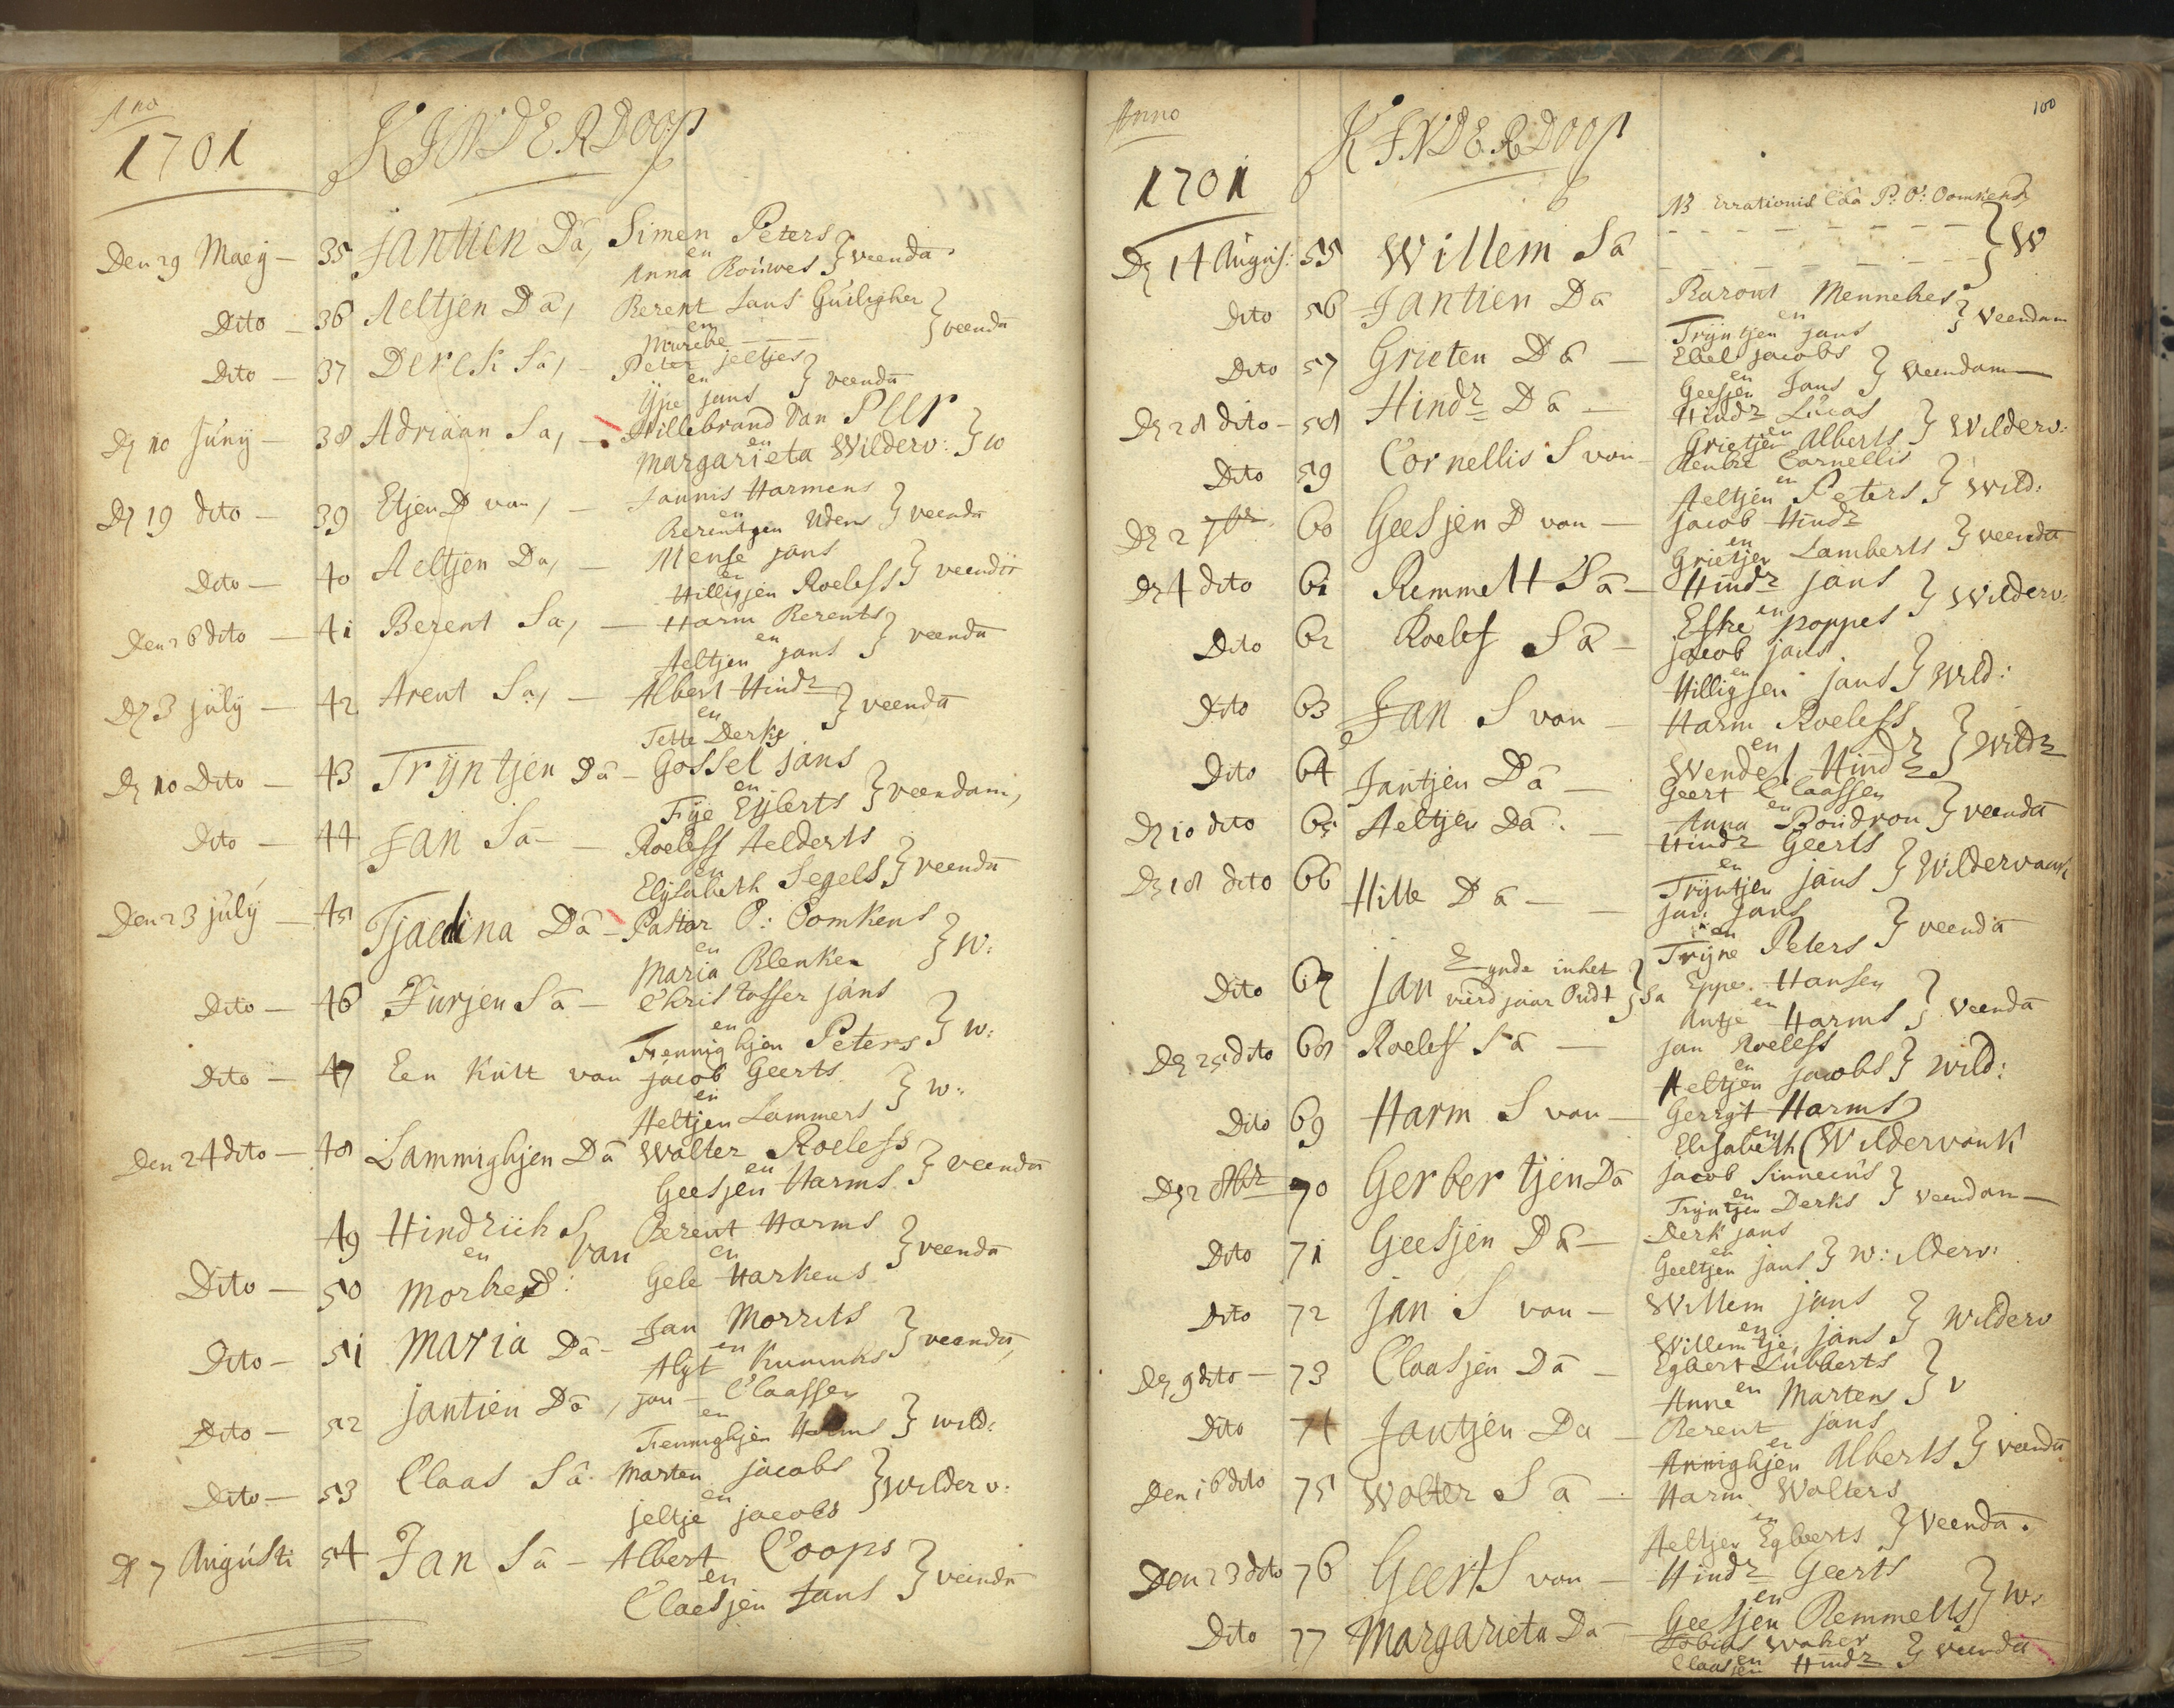 Ano
1701
KINDERDOOP
Den 29 Maeij — 35 Jantien Dā, Simen Peters
en
Anna Rouwes } veenda.
Dito — 36 Aeltjen Dā, Berent Jans
en } veendā
Dito — 37 Derck Sā, — Peter jeltjes
en
Ype jans } veendā
Dz 10 Junij — 38 Adriaan Sa, — Hillebrand Van Peer
en
Margarieta Wilderv: } w
Dz 19 dito — 39 Etjen D van, — Jannis Harmens
en
Berentjen Udens } veendā
Dito — 40 Aeltjen Da, — Mense jans
en
Hilligjen Roeleffs } veendā
Den 26 dito — 41 Berent Sa, — Harm Berents
en
Aeltjen jans } veendā
Dz 3 julij — 42 Arent Sa, — Albert Hindr
en
Tette Derks } veendā
Dz 10 Dito — 43 Trijntjen Dā — Gossel jans
en
Fije Eijlerts } veendam,
Dito — 44 Jan Sā — Roeleff Aelderts
en
Elijsabeth Segels } veendā
Den 23 julij — 45 Tjaedina Dā — Pastor O: Oomkens
en
Maria Blenken } W:
Dito — 46 Jurjen Sā — Christoffer jans
en
Trennighjen Peters } w:
Dito — 47 Een Kint van jacob Geerts
en
Aeltjen Lammers } w:
Den 24 dito — 48 Lammighjen Dā Wolter Roeleffs
en
Geesjen Harms } veendā
49 Hindrich S Berent Harms
en van en
Dito — 50 Morke D: Gele Harkens } veendā
Dito — 51 Maria Dā — Jan Morrits
en
Algt } veendā,
Dito — 52 jantien Dā, jan — Claassen
en
Trennighjen Harms } wild:
Dito — 53 Claas Sā. Marten jacobs
en
jeltje jacobs } wilderv:
D 7 Augusti 54 Jan Sā — Albert Coops
en
Claesjen Jans } veendā
100
Anno
1701
KINDERDOOP
NB Errationis Cōā P. O: Oomkens
Dz 14 Augus: 55 Willem Sā — — — — } W
Dito 56 Jantien Dā Baront Mennekes
en
Trijntjen jans } Veendam
Dito 57 Grieten Dā — Ebel jacobs
en
Geesjen Jans } Veendam
Dz 28 dito — 58 Hindr Dā — Hindr Lucas
en
Grietjen Alberts } Wilderv:
Dito 59 Cornellis S van — Renke Cornellis
en
Aeltjen Peters } Wild:
Dz 2 7br 60 Geesjen D van — jacob Hindr
en
Grietjen Lamberts } veendā
Dz 4 dito 61 Remmelt Sā — Hindr jans
en
Efke poppes } Wilderv:
Dito 62 Roelef Sā — jacob jans
en
Hilligjen jans } Wild:
Dito 63 Jan S van — Harm Roeleffs
en
Wendel Hindr } Wildr
Dito 64 Jantjen Dā — Geert Claassen
en
Anna Boudron } veendā
Dz 10 dito 65 Aeltjen Dā. — Hindr Geerts
en
Trijntjen jans } Wildervank
Dz 18 dito 66 Hille Dā — — jan jans
en
Trijne Peters } veendā
Dito 67 jan Eynde inhet
vierd jaar Oudt } Sa Eppe Hansen
en
Antje Harms } Veendā
Dz 25 dito 68 Roelef Sā — jan Roeleffs
en
Aeltjen jacobs } Wild:
Dito 69 Harm S van — Gerrijt Harms
en
Elisabeth ( Wildervank
Dz 2 8br 70 Gerbertjen Dā jacob Sinnecus
en
Trijntjen Derks } Veendam —
Dito 71 Geesjen Dā — Derk jans
en
Geeltjen jans } W: ilderv:
Dito 72 jan S van — Willem jans
en
Willemtje jans } Wilderv
Dz 9 dito — 73 Claasjen Dā — Egbert Lubberts
en
Anne Martens } v
Dito 74 Jantjen Da — Berent jans
en
Annighjen Alberts } veendā
Den 16 dito 75 Wolter Sā — Harm Wolters
en
Aeltjen Egberts } Veendā.
Den 23 dito 76 Geert S van — Hindr Geerts
en
Geesjen Remmelts } W.
Dito 77 Margarieta Da — Tobias Waker
en
Claasjen Hindr } veendā